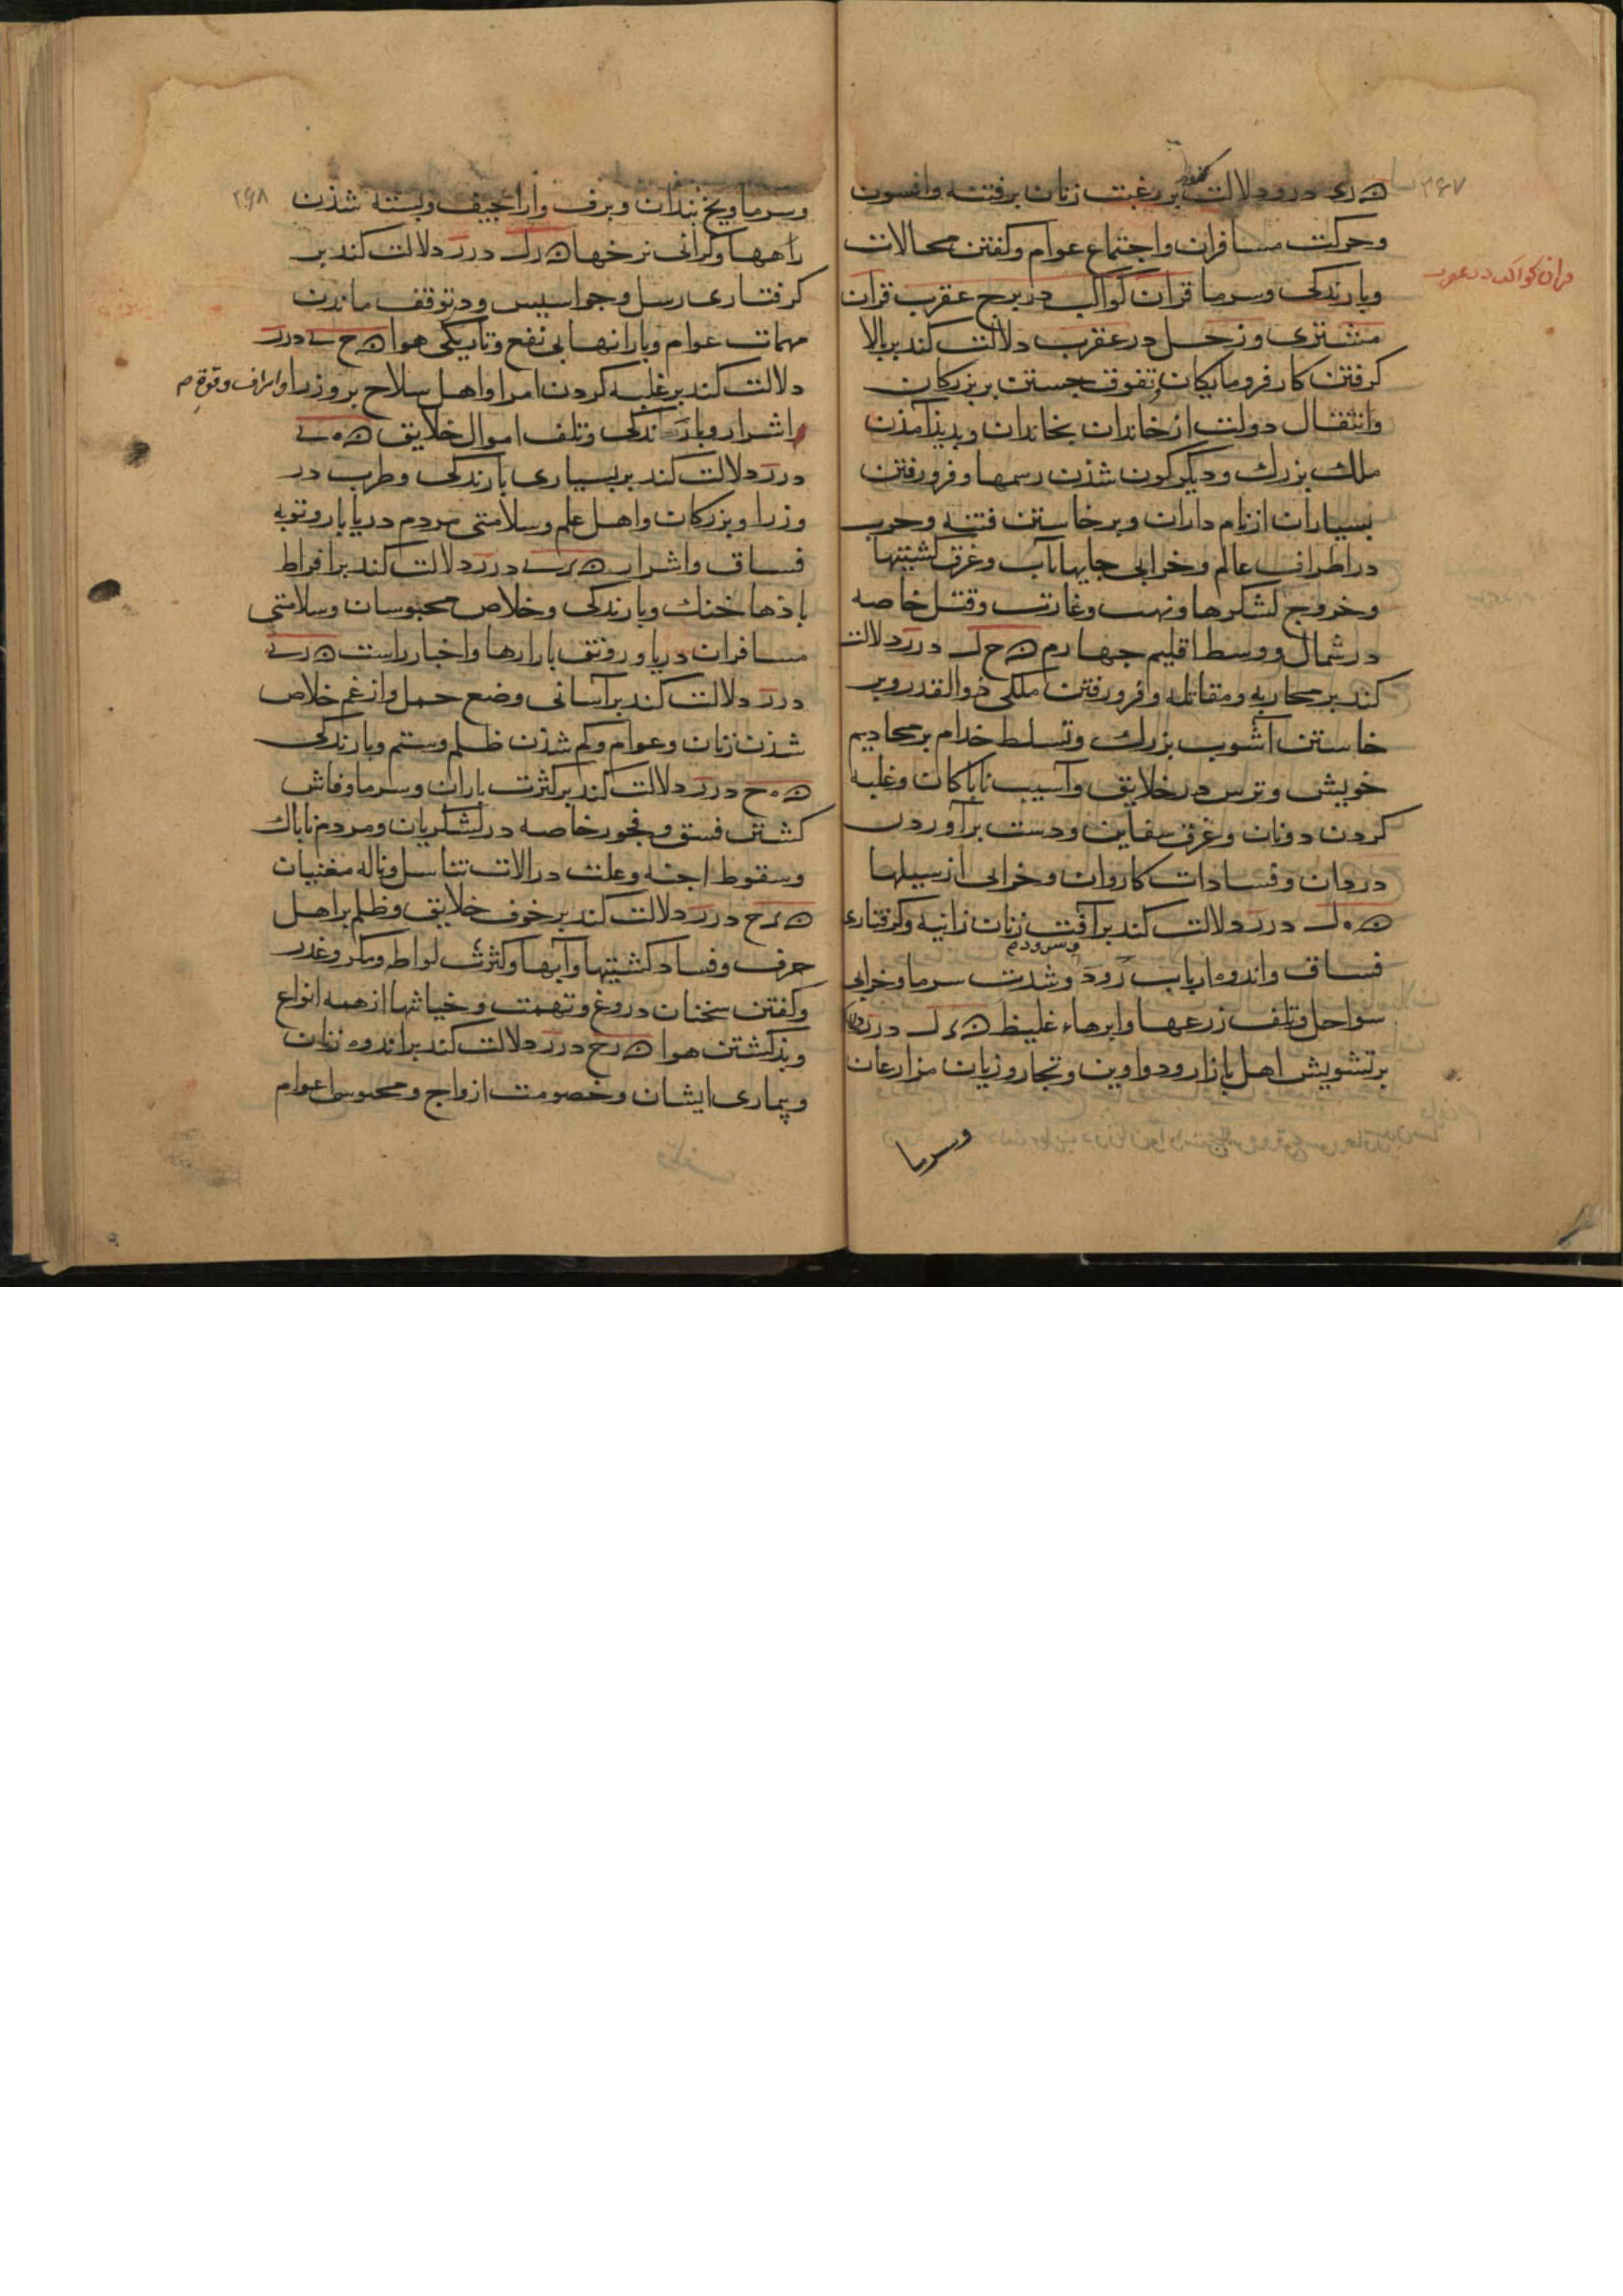 ۳۶۷
ﻫ ری درو دلالت کند بر رغبت زنان برفتنه وافسون
وحرکت مسافران واجتماع عوام وکفتن محالات
قران کواکب در عقرب
وبارندکی وسرما قران کواکب در برج عقرب قران
مشتری وزحل در عقرب دلالت کند بر بالا
کرفتن کار فرومایکان وتفوق جستن بر بزرکان
وانتقال دولت از خاندان بخاندان وپدیذ آمذن
ملک بزرک ودیکرکون شذن رسمها وفرو رفتن
بسیاران از نام داران وبرخاستن فتنه وحرب
در اطراف عالم وخرابی جایها بآب وغرق کشتیها
وخروج لشکرها ونهب وغارت وقتل خاصه
در شمال ووسط اقلیم چهارم ﻫ ح ل درر دلالت
کند بر محاربه ومقاتله وفرو رفتن ملکی ذوالقدر وبر
خاستن آشوب بزرک وتسلط خدام بر مخادیم
خویش وترس در خلایق وآسیب ناپاکان وغلبه
کردن دونان وغرق سفاین ودست برآوردن
دردان وفسادات کاروان وخرابی از سیلها
ﻫ ه ل درر دلالت کند بر آفت زنان زانیه وکرفتاری
فساق واندوه ارباب رود وسرود وشدت سرما وخرابی
سواحل وتلف زرعها وابرهاء غلیظ ﻫ د ل درر دلالت
بر تشویش اهل بازار ودواوین وتجار وزیان مزارعان
وسرما
۲۶۸
وسرما ویخ بندان وبرف واراجیف وبسته شدن
راهها وکرانی نرخها ﻫ ر ل درر دلالت کند بر
کرفتاری رسل وجواسیس ودر توقف ماندن
مهمات عوام وبارانهاء بی نفع وتاریکی هوا ﻫ ح ی درر
دلالت کند بر غلبه کردن امرا واهل سلاح بر وزرا واشراف وقوة
اشرار وبارندکی وتلف اموال خلایق ﻫ ه ی
درر دلالت کند بر بسیاری بارندکی وطرب در
وزرا وبزرکان واهل علم وسلامتی مردم دریابار وتوبه
فساق واشرار ﻫ د ی درر دلالت کند بر افراط
باذهاء خنک وبارندکی وخلاص محبوسان وسلامتی
مسافران دریا ورونق بازارها واخبار راست ﻫ ر ی
درر دلالت کند بر آسانی وضع حمل واز غم خلاص
شذن زنان وعوام وکم شذن ظلم وستم وبارندکی
ﻫ ه ح درر دلالت کند بر کثرت باران وسرما وفاش
کشتن فسق وفجور خاصه در لشکریان ومردم ناپاک
وسقوط اجنه وعلت در آلات تناسل وناله مغنیات
ﻫ د ح درر دلالت کند بر خوف خلایق وظلم بر اهل
حرف وفساد کشتیها وآبها وکثرت لواطه ومکر وغدر
وکفتن سخنان دروغ وتهمت وخیانتها از همه انواع
وبذ کشتن هوا ﻫ ر ح درر دلالت کند بر اندوه زنان
وبیماری ایشان وخصومت ازواج ومحبوسی عوام